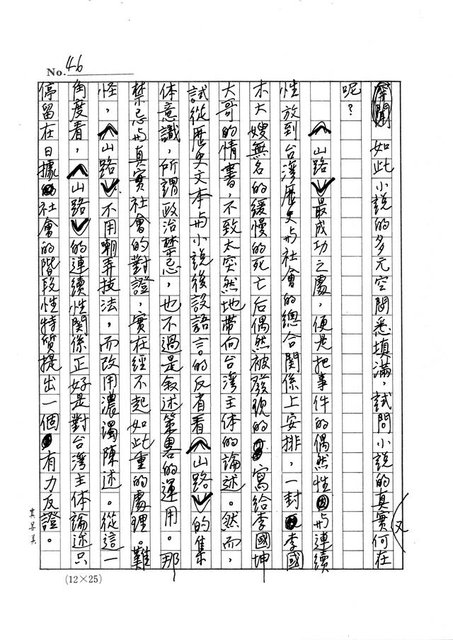 No. 46
如此小說的多元空間悉填滿，試問小說的真實何在
又
呢？
《山路》最成功之處，便是把事件的偶然性與連續
性放到台灣歷史與社會的總合關係上安排，一封李國
木大嫂無名的緩慢的死亡后偶然被發現的寫給李國坤
大哥的情書，不致太突然地帶向台灣主体的論述。然而，
試從歷史文本與小說後設語言的反省看《山路》的集
体意識，所謂政治禁忌，也不過是敘述策畧的運用。那
禁忌與真實社會的對證，實在經不起如此重的處理。難
怪，《山路》不用嘲弄技法，而改用濃濁陳述。從這一
角度看，《山路》的連續性關係正好是對台灣主体論述只
停留在日據社會的階段性特質提出一個有力反證。
(12×25)